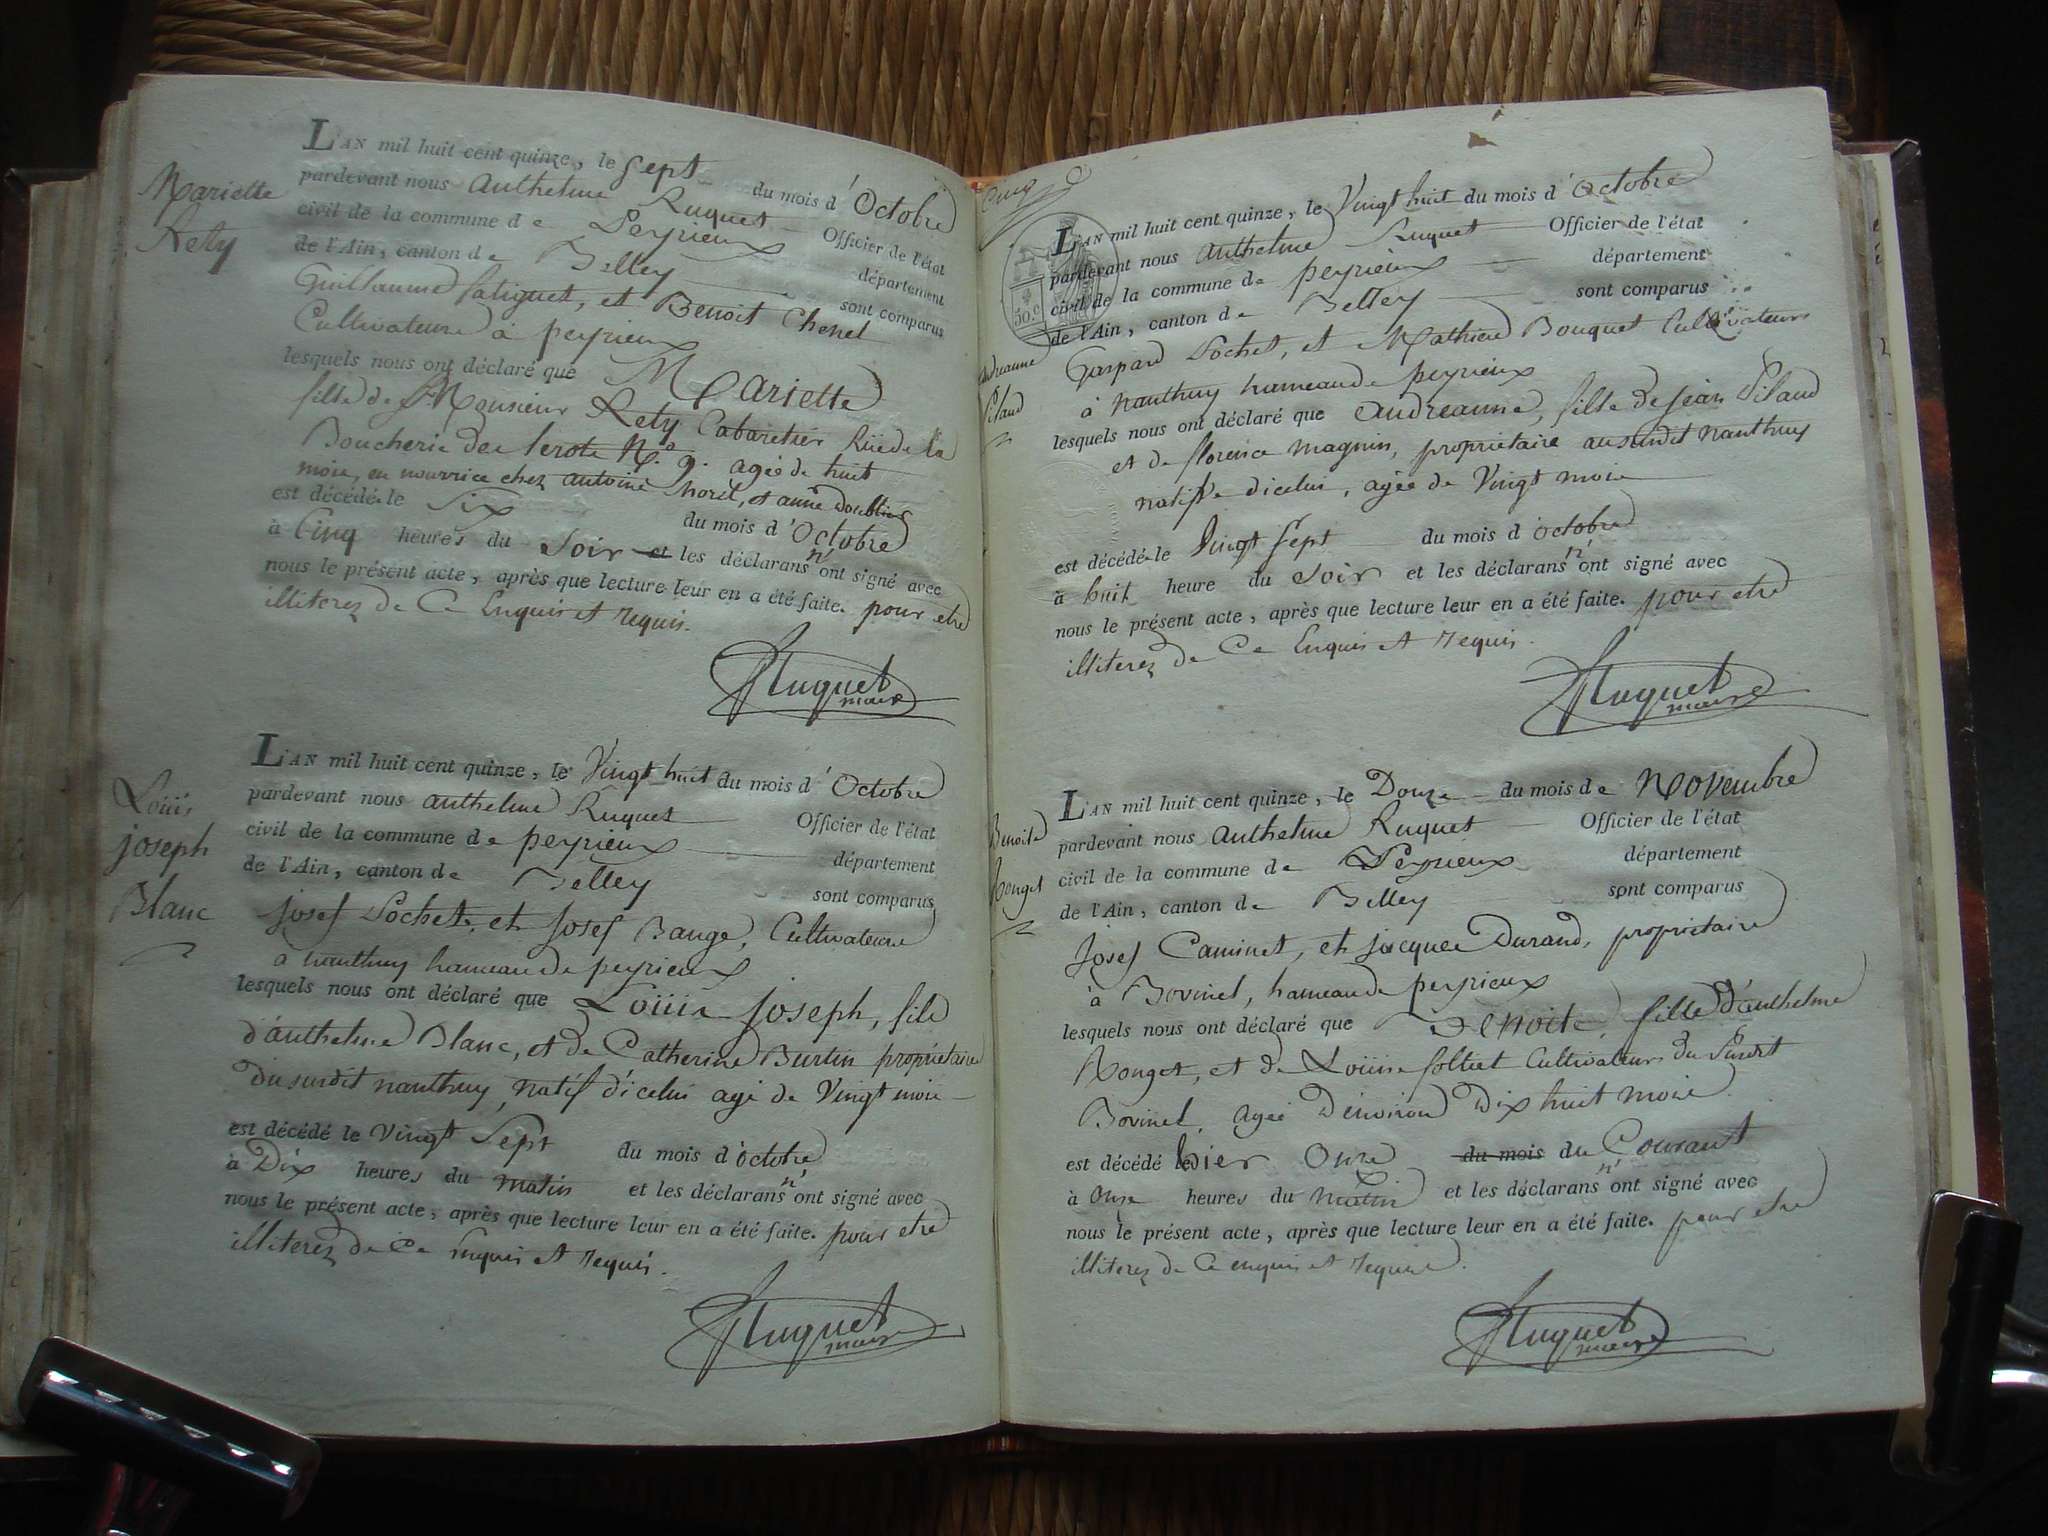 Mariette
Rety
L'AN mil huit cent quinze, le Sept du mois d'Octobre
pardevant nous Anthelme Ruguet Officier de l'état
civil de la commune de Peyrieux département
de l'Ain, canton de Belley sont comparus
Guillaume et Benoit Chenel
Cultivateurs à peyrieux
lesquels nous ont déclaré que Mariette
fille de Monsieur Rety Cabaretier Rüe de la
Boucherie des N.º 9. agée de huit
mois, en nourrice chez antoine et anne
est décédé le Six du mois d'Octobre
à Cinq heures du Soir et les déclarans n'ont signé avec
nous le présent acte, après que lecture leur en a été faite. pour etre
illiterez de Ce Enquis et requis.
Ruguet
maire
Loüis
joseph
Blanc
L'AN mil huit cent quinze, le Vingt huit du mois d'Octobre
pardevant nous anthelme Ruguet Officier de l'état
civil de la commune de peyrieux département
de l'Ain, canton de Belley sont comparus
josef Pochet, et josef Bauge, Cultivateurs
a nanthuy hameau de peyrieux
lesquels nous ont déclaré que Loüis joseph, fils
d'anthelme Blanc, et de Catherine Burtin propriétaires
du surdit nanthuy, natif d'icelui agé de Vingt mois
est décédé le Vingt Sept du mois d'octobre
à Dix heures du matin et les déclarans n'ont signé avec
nous le présent acte, après que lecture leur en a été faite. pour etre
illiterez de Ce Enquis et requis.
Ruguet
maire
Cinq
50.C
Andreanne
Pilaud
L'AN mil huit cent quinze, le Vingt huit du mois d'Octobre
pardevant nous Anthelme Ruguet Officier de l'état
civil de la commune de peyrieux département
de l'Ain, canton de Belley sont comparus
Gaspard Pochet, et Mathieu Bouquet Cultivateurs
à nanthuy hameau de peyrieux
lesquels nous ont déclaré que andreanne, fille de jean Pilaud
et de florence magnin, propriétaire au surdit nanthuy
native d'icelui, agée de Vingt mois
est décédé le Vingt Sept du mois d'octobre
à huit heure du Soir et les déclarans n'ont signé avec
nous le présent acte, après que lecture leur en a été faite. pour etre
illiterez de Ce Enquis et requis.
Ruguet
maire
Benoite
Rouget
L'AN mil huit cent quinze, le Douze du mois de Novembre
pardevant nous Anthelme Ruguet Officier de l'état
civil de la commune de Peyrieux département
de l'Ain, canton de Belley sont comparus
Josef Caminet, et jacques Durand, propriétaires
à Bovinel, hameau de peyrieux
lesquels nous ont déclaré que Benoite, fille d'anthelme
Rouget, et de Loüise Cultivateurs du Surdit
Bovinel, agée D'environ Dix huit mois
est décédé le hier Onze du mois du Courant
à onze heures du matin et les déclarans n'ont signé avec
nous le présent acte, après que lecture leur en a été faite. pour etre
illiterez de Ce enquis et requis.
Ruguet
maire